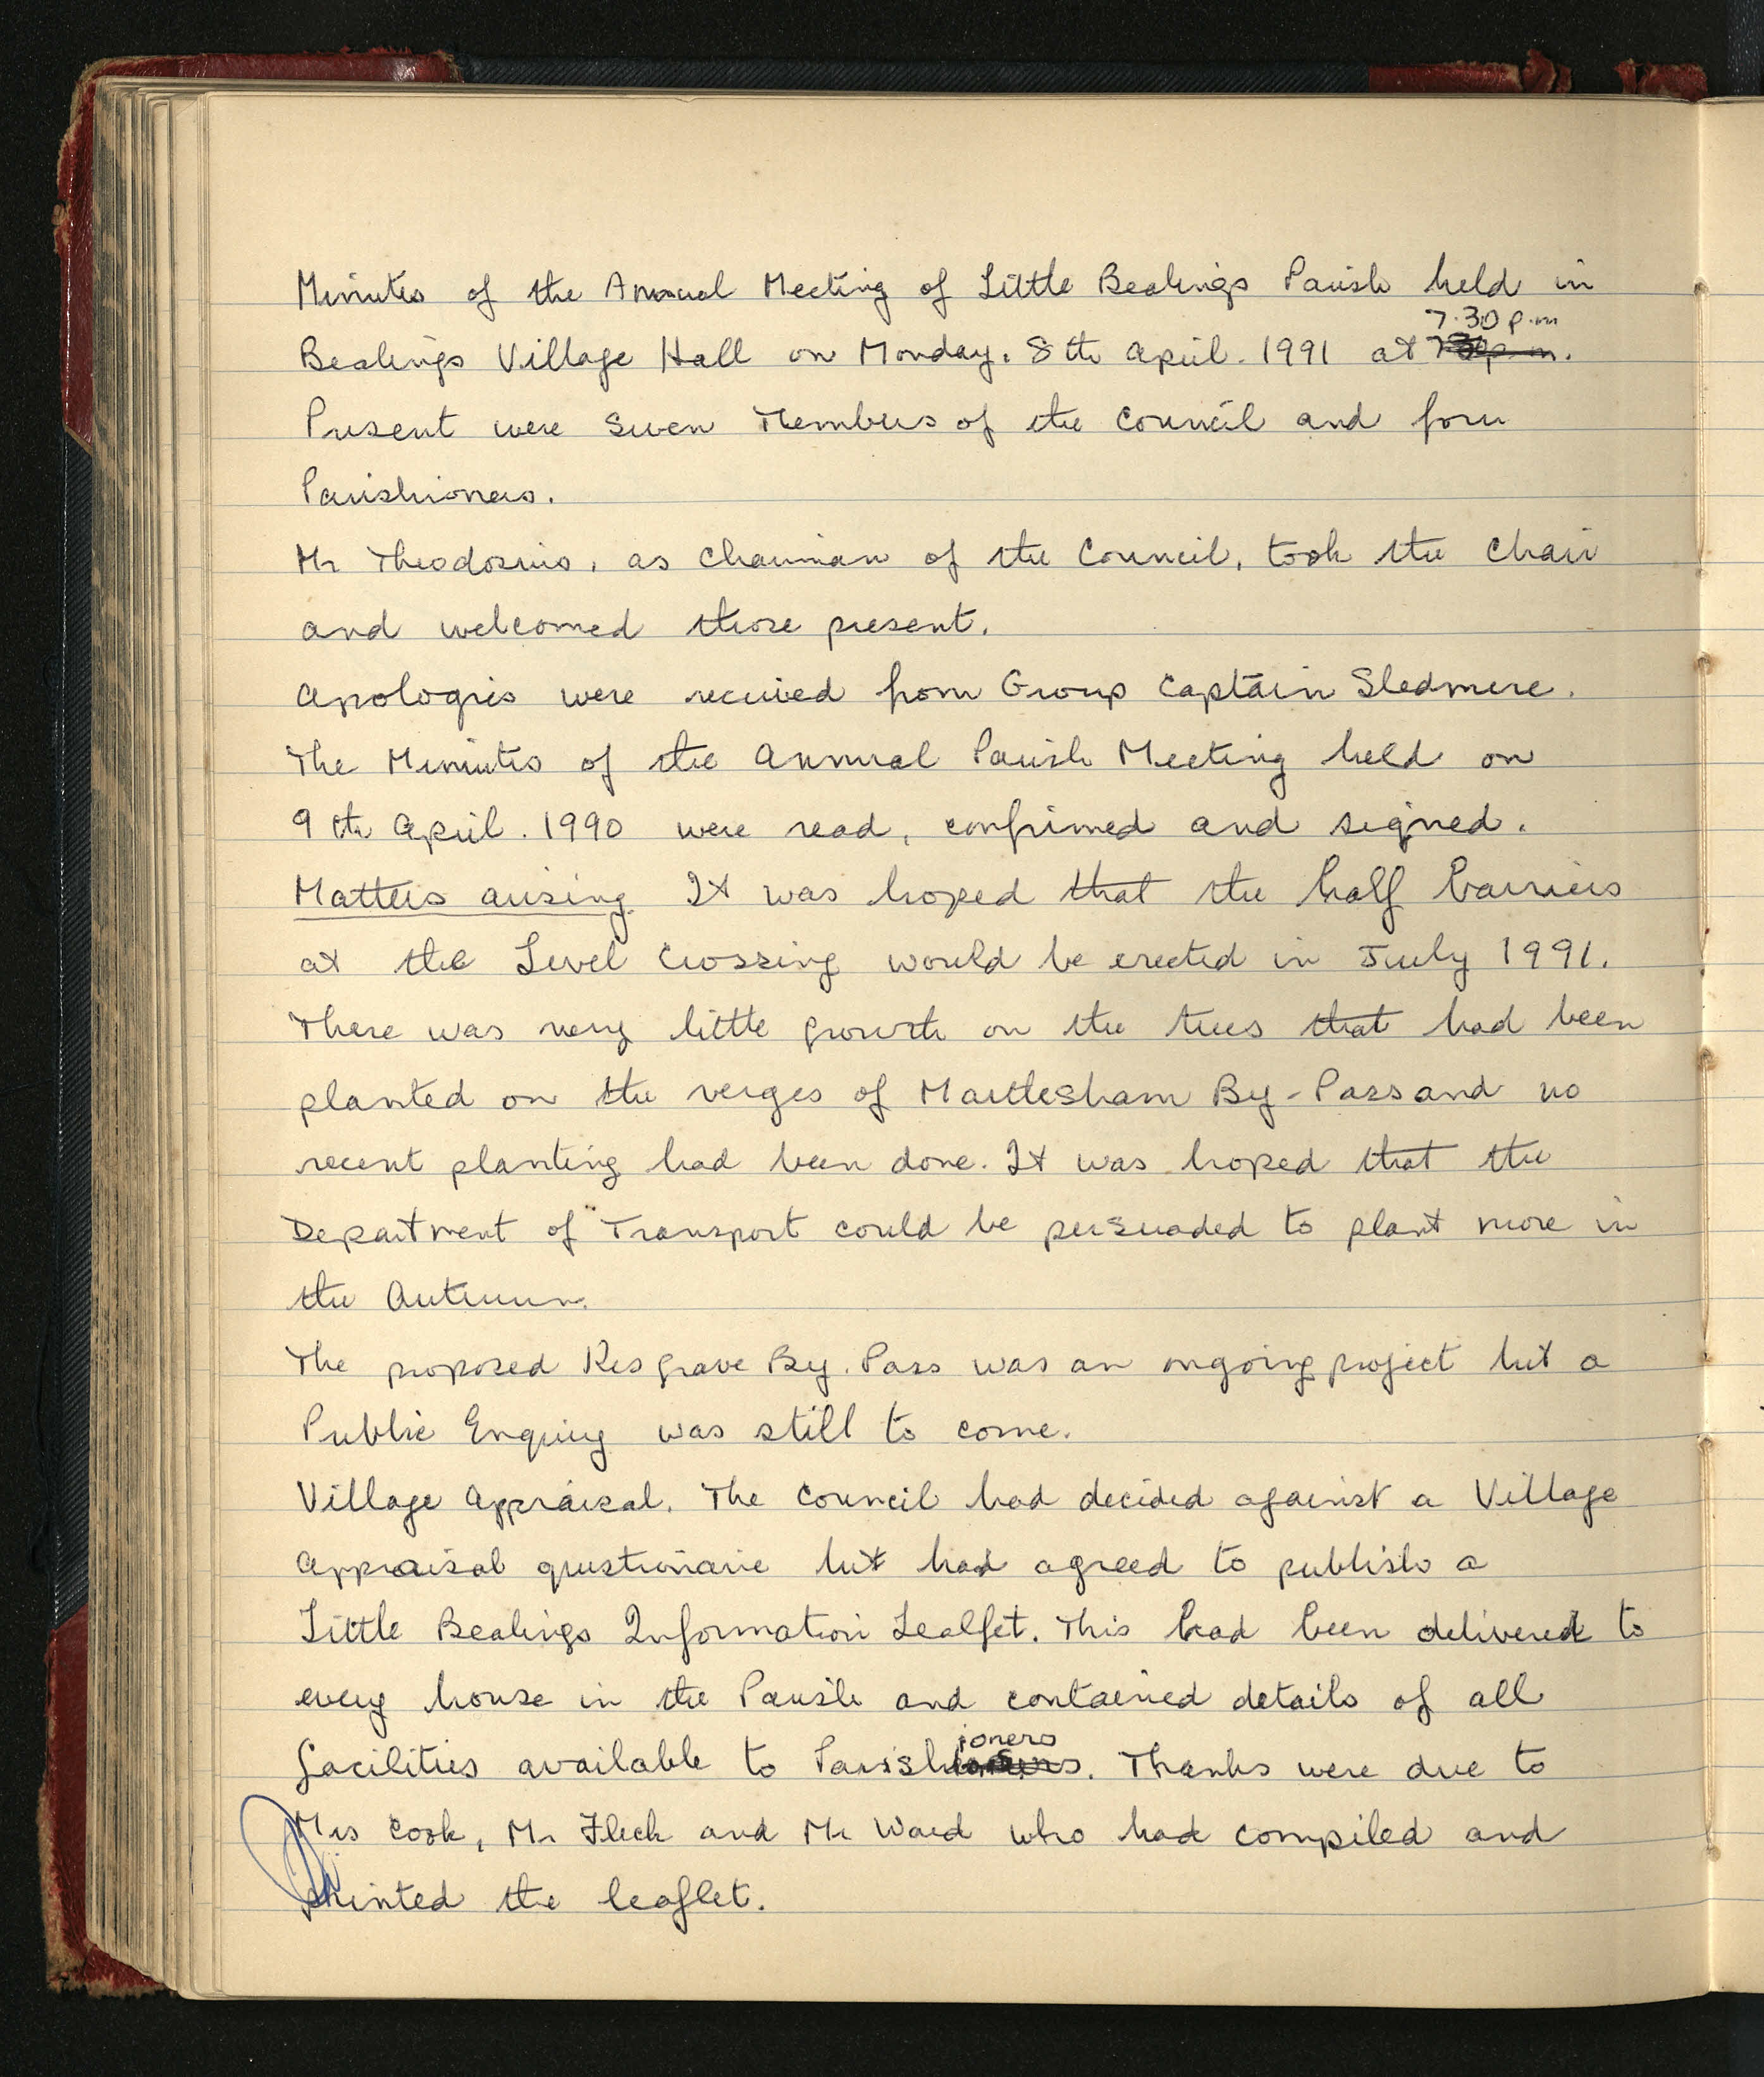 Minutes of the Annual Meeting of Little Bealings Parish held in
7.30 p.m
Bealings Village Hall on Monday. 8th April. 1991 at 7.30p.m.
Present were Seven Members of the Council and four
Parishioners.
Mr Theodosius, as Chairman of the Council, took the Chair
and welcomed those present.
Apologies were received from Group Captain Sledmere.
The Minutes of the Annual Parish Meeting held on
9th April. 1990 were read, confirmed and signed.
Matters arising. It was hoped that the half barriers
at the Level Crossing would be erected in July 1991.
There was very little growth on the trees that had been
planted on the verges of Martlesham By-Pass and no
recent planting had been done. It was hoped that the
Department of Transport could be persuaded to plant more in
the Autumn.
The proposed Kesgrave By.Pass was an ongoing project but a
Public Enquiry was still to come.
Village Appraisal. The Council had decided against a Village
Appraisal questionaire but had agreed to publish a
Little Bealings Information Lealfet. This had been delivered to
every house in the Parish and contained details of all
facilities available to Parishioners. Thanks were due to
Mrs Cook, Mr Fleck and Mr Ward who had compiled and
printed the leaflet.